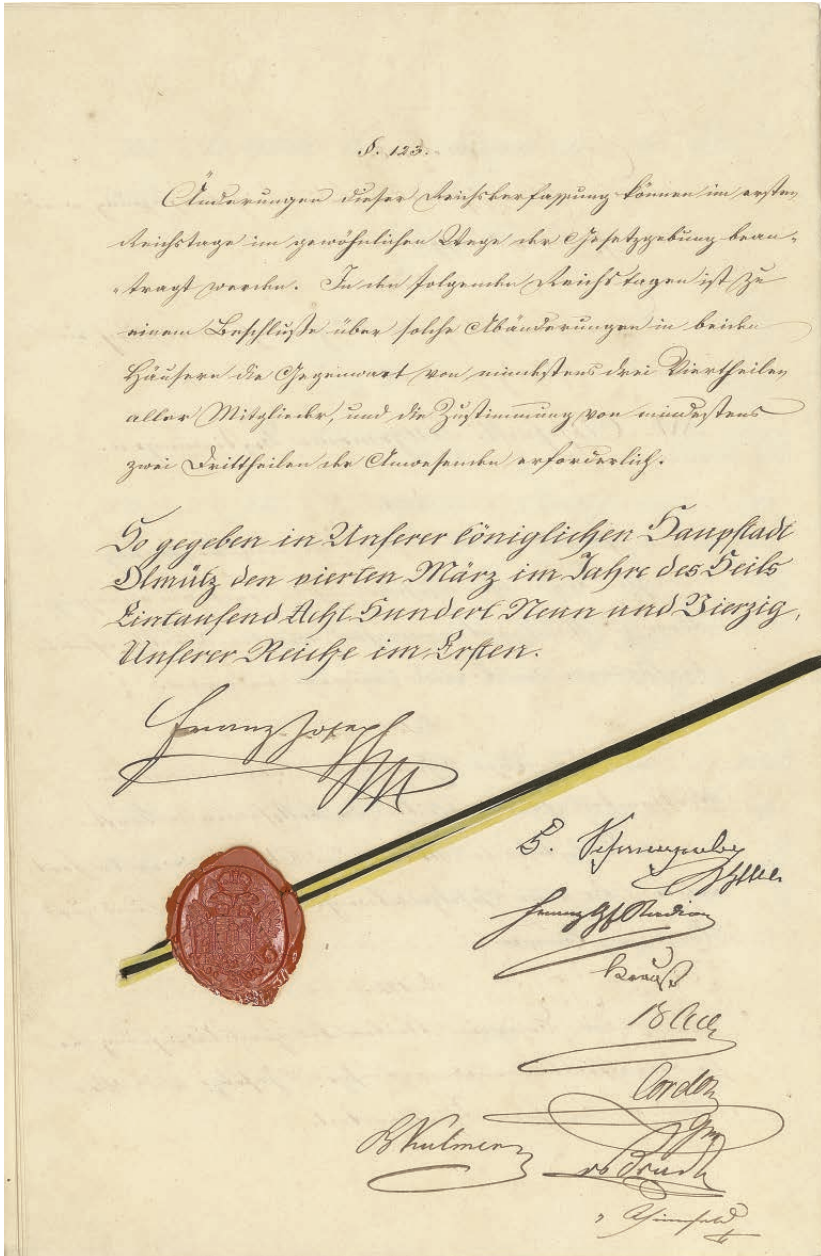 §. 123.
Änderungen dieser Reichsverfassung können im ersten
Reichstage im gewöhnlichen Wege der Gesetzgebung bean-
-tragt werden. In den folgenden Reichstagen ist zu
einem Beschluße über solche Abänderungen in beiden
Häusern die Gegenwart von mindestens drei Viertheilen
aller Mitglieder, und die Zustimmung von mindestens
zwei Drittheilen der Anwesenden erforderlich.
So gegeben in Unserer königlichen Hauptstadt
Olmütz den vierten März im Jahre des Heils
Eintausend Acht Hundert Neun und Vierzig,
Unserer Reiche im Ersten.
Franz Joseph
F. Schwarzenberg
Franz Gf Stadion
Krauß
Bach
Cordon
GM
v Bruck
Thinnfeld
Kulmer